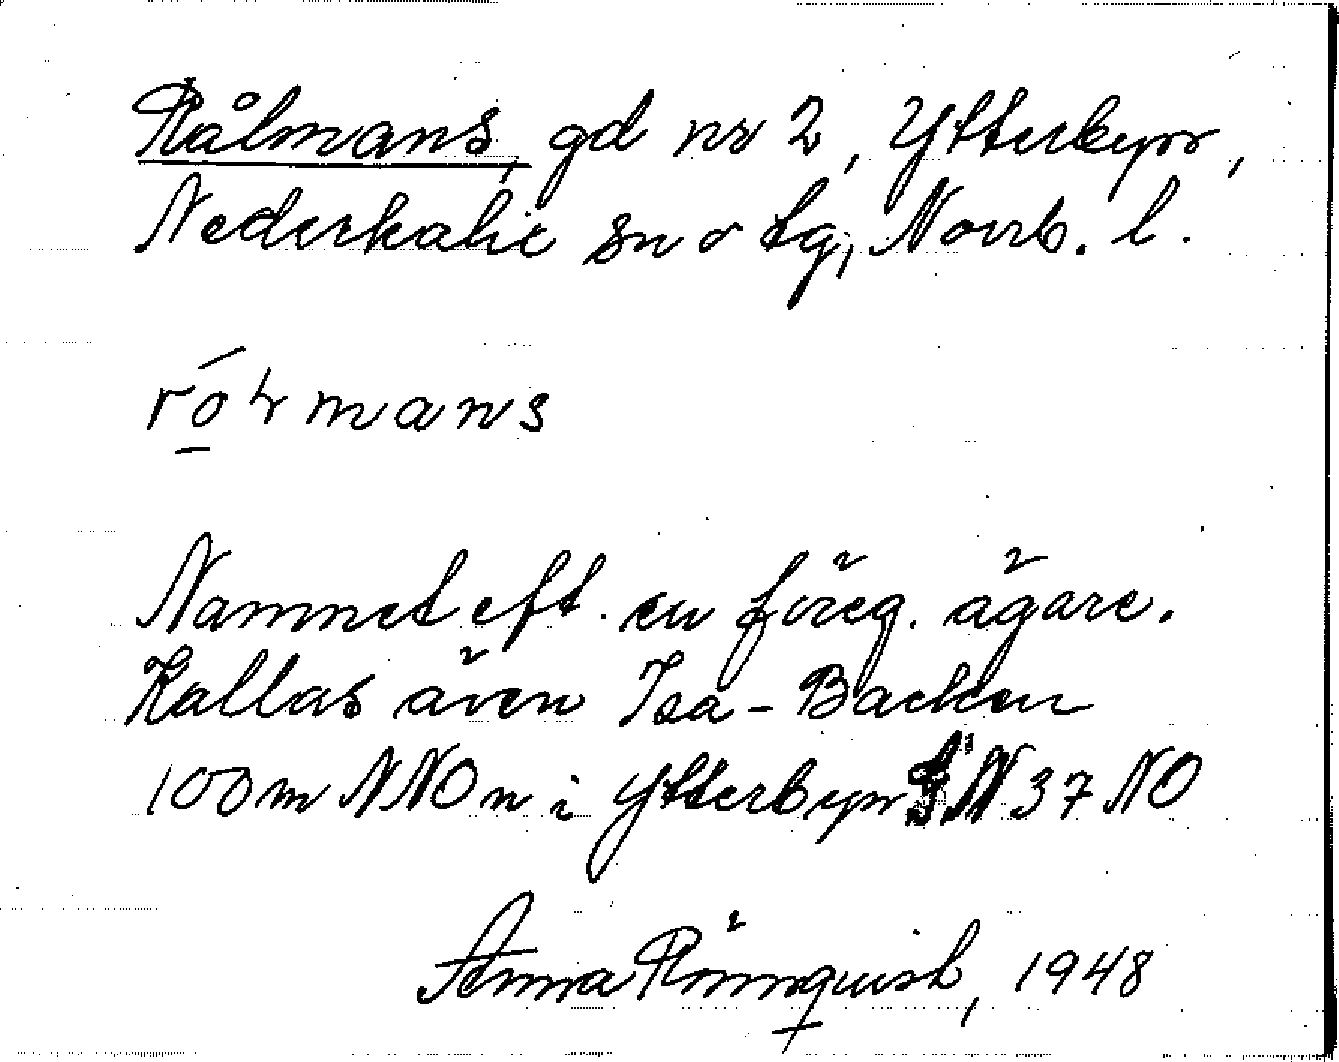 Rålmans, gd nr 2, Ytterbyn,
Nederkalix sn o tg, Norrb. l.
Namnet eft. en föreg. ägare.
Kallas även Isa-Backen
100m NNO n i Ytterbyn N 37 NO
Anna Rönnquist, 1948